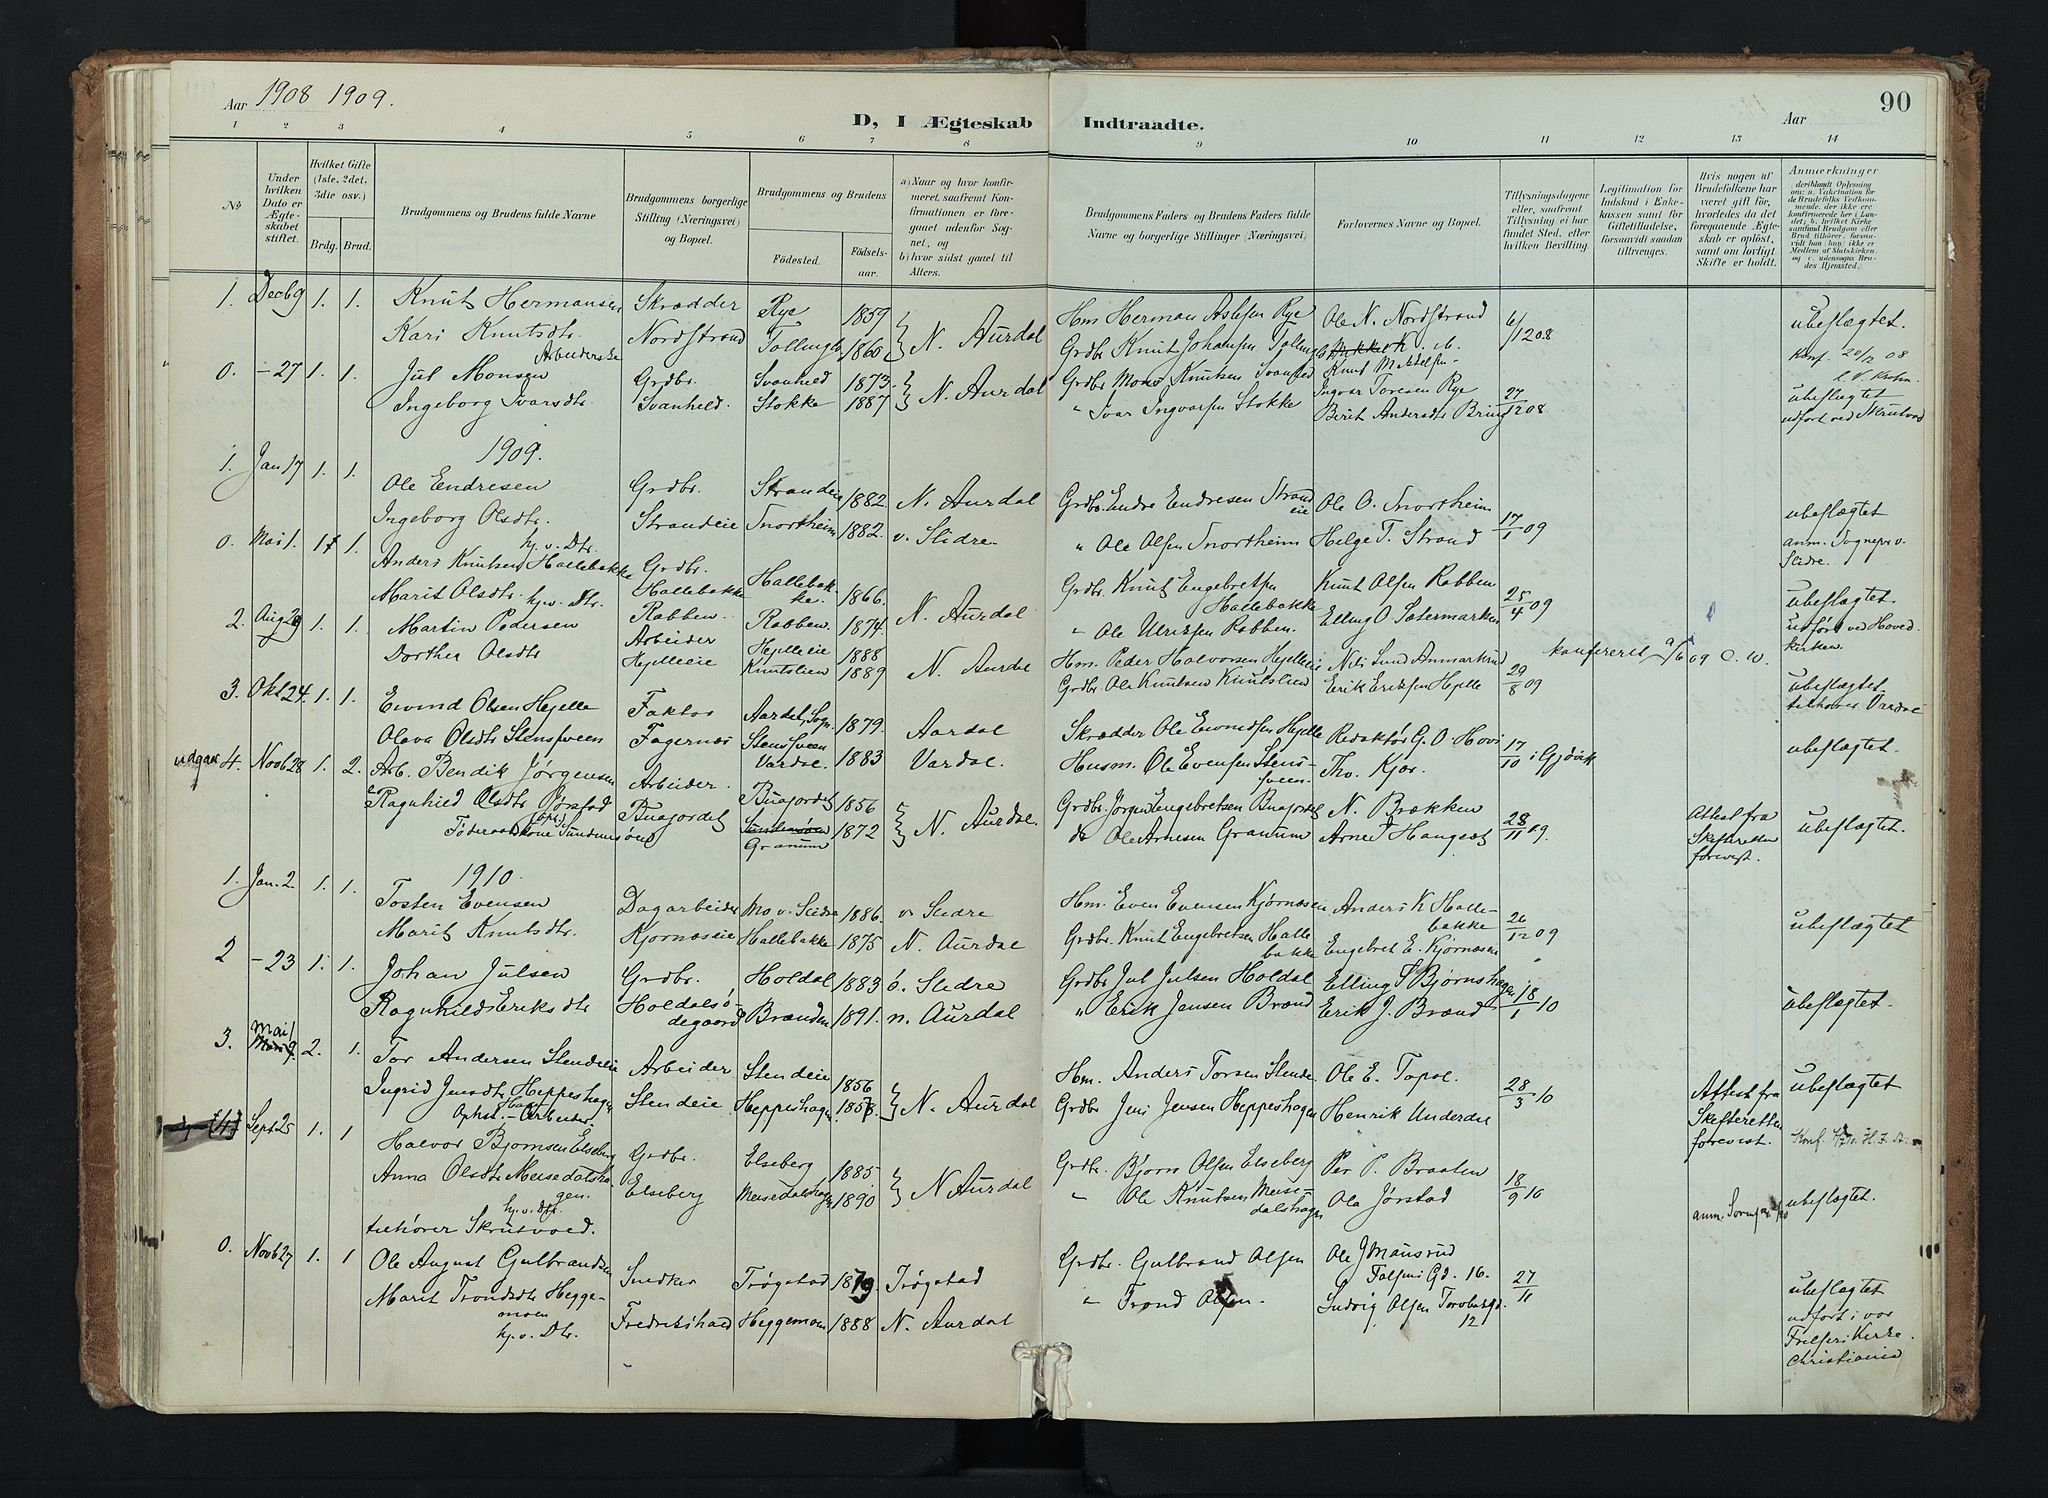 Aar 1908 1909.
D, I Ægteskab Indtraadte.
90
Aar
1 2 3 4 5 6 7 8 9 10 11 12 13 14
No
Under hvilken Dato er Ægteskabet stiftet.
Hvilket Gifte (1ste, 2det, 3die osv.)
Brdg. Brud.
Brudgommens og Brudens fulde Navne
Brudgommens borgerlige Stilling (Næringsvei) og Bopæl.
Brudgommens og Brudens
Fødested. Fødselsaar.
a) Naar og hvor konfirmeret, saafremt Konfirmationen er foregaaet udenfor Sognet, og
b) hvor sidst gaaet til Alters.
Brudgommens Faders og Brudens Faders fulde Navne og borgerlige Stillinger (Næringsvei)
Forlovernes Navne og Bopæl.
Tillysningsdagene eller, saafremt Tillysning ei har fundet Sted, efter hvilken Bevilling.
Legitimation for Indskud i Enkekassen samt for Giftetilladelse, forsaavidt saadan tiltrænges.
Hvis nogen af Brudefolkene har været gift før, hvorledes da det foregaaende Ægteskab er opløst, samt om lovligt Skifte er holdt.
Anmerkninger
deriblandt Oplysning om: a. Vakcination for Brudefolks Vedkommende, der ikke ere konfirmerede her i Landet; b. hvilket Kirkesamfund Brudgom eller Brud tilhører, forsaavidt han (hun) ikke er Medlem af Statskirken, og c. udensogns Brudes Hjemsted.
1. Decb 9 1. 1. Knut Hermansen Skrædder Rye 1859 N. Aurdal Hm. Herman Aslesen Rye Ole N. Nordstrand 6/12 08 ubeslægtet.
Kari Knutsdtr. Nordstrand 1860 Grdbr. Knut Johansen Knut Mikkelsen
Arbeiderske Konf. 20/12 08
0. - 27 1. 1. Jul Monsen Grdbr. Svanheld 1873 N. Aurdal Grdbr. Mons Knutsen Ingvar Toresen Rye 27/12 08 ubeslægtet
Ingeborg Ivarsdtr. Svanheld. Stokke 1887 " Ivar Ingvarsen Stokke Berit Andersdtr udført ved Skrutvold
1909.
1. Jan 17 1. 1. Ole Endresen Grdbr. Strandeie 1882 N. Aurdal Grdbr. Endre Endresen Strandeie Ole O. Snortheim 17/1 09 ubeslægtet
Ingeborg Olsdtr. Strandeie Snortheim 1882. v. Slidre " Ole Olsen Snortheim Helge T. Strand anm. Sognepr. v. Slidre.
hj. v. Dtr.
0. Mai 1. 1. Anders Knutsen Hallebakke Grdbr. Hallebakke Hallebakke. 1866. N. Aurdal Grdbr. Knut Engebretsen Hallebakke Knut Olsen Robben 25/4 09 ubeslægtet.
Marit Olsdtr. hj. v. Dtr. Robben. Robben. 1874. " Ole Ulriksen Robben. Elling O. Sætermarken udført ved Hovedkirken.
2. Aug 29 1. 1. Martin Pedersen Arbeider Hjelleeie 1888 N. Aurdal Hm. Peder Halvorsen Hjelleeie Nils 29/8 09 konfereret 09 C. W. ubeslægtet
Dorthea Olsdtr Hjelleeie Knutslien 1889 Grdbr. Ole Knutsen Knutslien Erik Eriksen Hjelle tilhører Vardal
3. Okt 24. 1. 1. Eivind Olsen Hjelle Faktor Aardal, Sogn 1879. Aardal Skrædder Ole Eivindsen Hjelle Redaktør G. O. Hovi 17/10 i Gjøvik ubeslægtet.
Olava Olsdtr Stensveen Fagernes Stensveen Vardal. 1883 Vardal. Husm. Ole Evensen Stensveen. Th. Kjær.
udgaar 4. Novb 28 1. 2. Arb. Bendik Jørgensen Arbeider. Buajordet 1856 N. Aurdal. Grdbr. Jørgen Engebretsen Buajordet N. Brækken 28/11 09. Attest fra Skifteretten forevist. ubeslægtet.
Ragnhild Olsdtr Jørstad Buajordet Granum 1872 do Ole Arnesen Granum Arne T Haugset
Føderaadskone
1910.
1. Jan. 2 1. 1. Tosten Evensen Dagarbeider Mo v. Slidre 1886. v Slidre Hm. Even Evensen Kjørnæseie Anders K Hallebakke 26/12 09 ubeslægtet
Marit Knutsdtr. Kjørnæseie Hallebakke 1875 N. Aurdal Grdbr. Knut Engebretsen Hallebakke Engebret E. Kjørnæseie
2 - 23 1. 1. Johan Julsen Grdbr. Holdal 1883 ø. Slidre Grdbr Jul Julsen Holdal Elling T Bjørnshagen 18/1 10 ubeslægtet.
Ragnhild Eriksdtr Holdalsødegaard Brænden 1891. n. Aurdal " Erik Jensen Brænd Erik J. Brænd
3. Mai 1 2. 1. Tor Andersen Stendeie Arbeider Stendeie 1856 N. Aurdal Hm. Anders Torsen Stende Ole E. Topol. 28/3 10 Attest fra Skifteretten forevist. ubeslægtet
Ingrid Jensdtr Heppeshagen Stendeie Heppeshagen 1858. Grdbr Jens Jensen Heppeshagen Henrik Underdal
(4) Sept 25 1. 1 Halvor Bjørnsen Elseberg Grdbr. Elseberg 1885. N Aurdal Grdbr. Bjørn Olsen Elseberg Per P. Braaten 18/9 10 ubeslægtet.
Anna Olsdtr Meisedalshagen. Elseberg Meisedalshagen 1890 " Ole Knutsen Meisedalshagen Ola Jørstad
hj. v. Dtr.
tilhører Skrutvold.
0. Novb 27 1. 1 Ole August Gulbrandsen Snedker Trøgstad 1879 Trøgstad Grdbr. Gulbrand Olsen Ole J Mausrud 27/11 ubeslægtet
Marit Trondsdtr Heggemoen Fredrikshald Heggemoen 1888 N. Aurdal " Trond Olsen. Falsens Gd. 16. udført i vor Frelsers Kirke. Christiania
hj. v. Dtr. Ludvig Olsen Torvbergd. 12